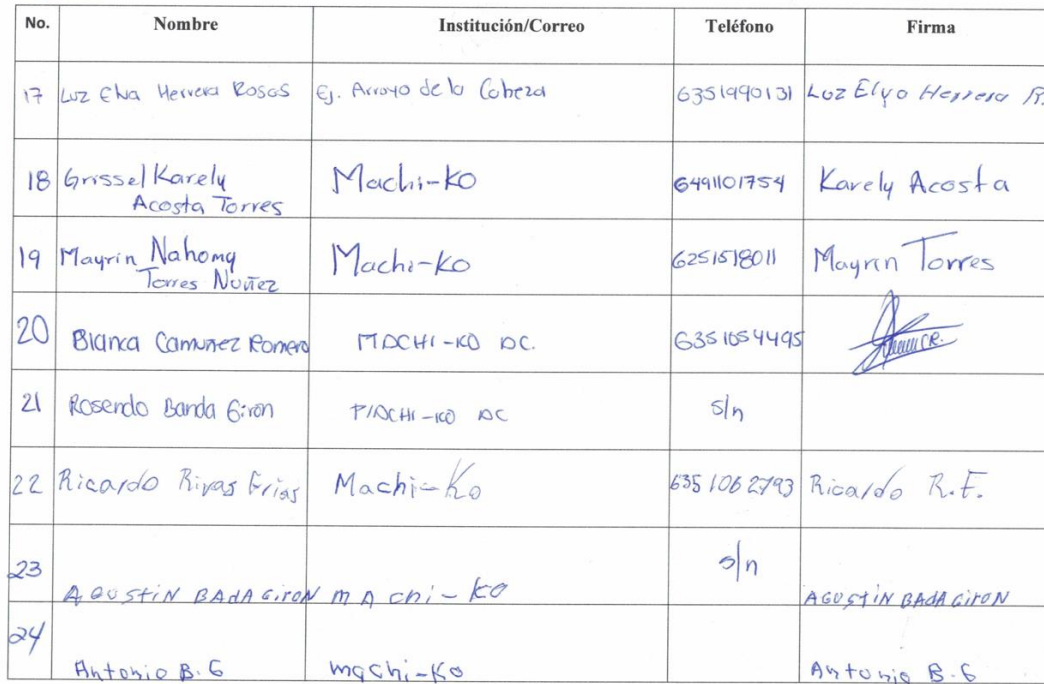 No. Nombre Institución/Correo Teléfono Firma
17 Luz Elva Herrera Rosas Ej. Arroyo de la Cabeza 6351990131 Luz Elva Herrera R.
18 Grissel Karely Machi-ko 6491101754 Karely Acosta
Acosta Torres
19 Mayrin Nahomy Machi-Ko 6251518011 Mayrin Torres
Torres Nuñez
20 Blanca Camuñez Romero MACHI-KO AC. 6351054495 CR.
21 Rosendo Banda Giron MACHI-KO AC s/n
22 Ricardo Rivas Frias Machi-Ko 6351062793 Ricardo R.F.
23 AGUSTIN BADA GIRON MAchi-KO s/n AGUSTIN BADA GIRON
24 Antonio B.G machi-Ko Antonio B.G